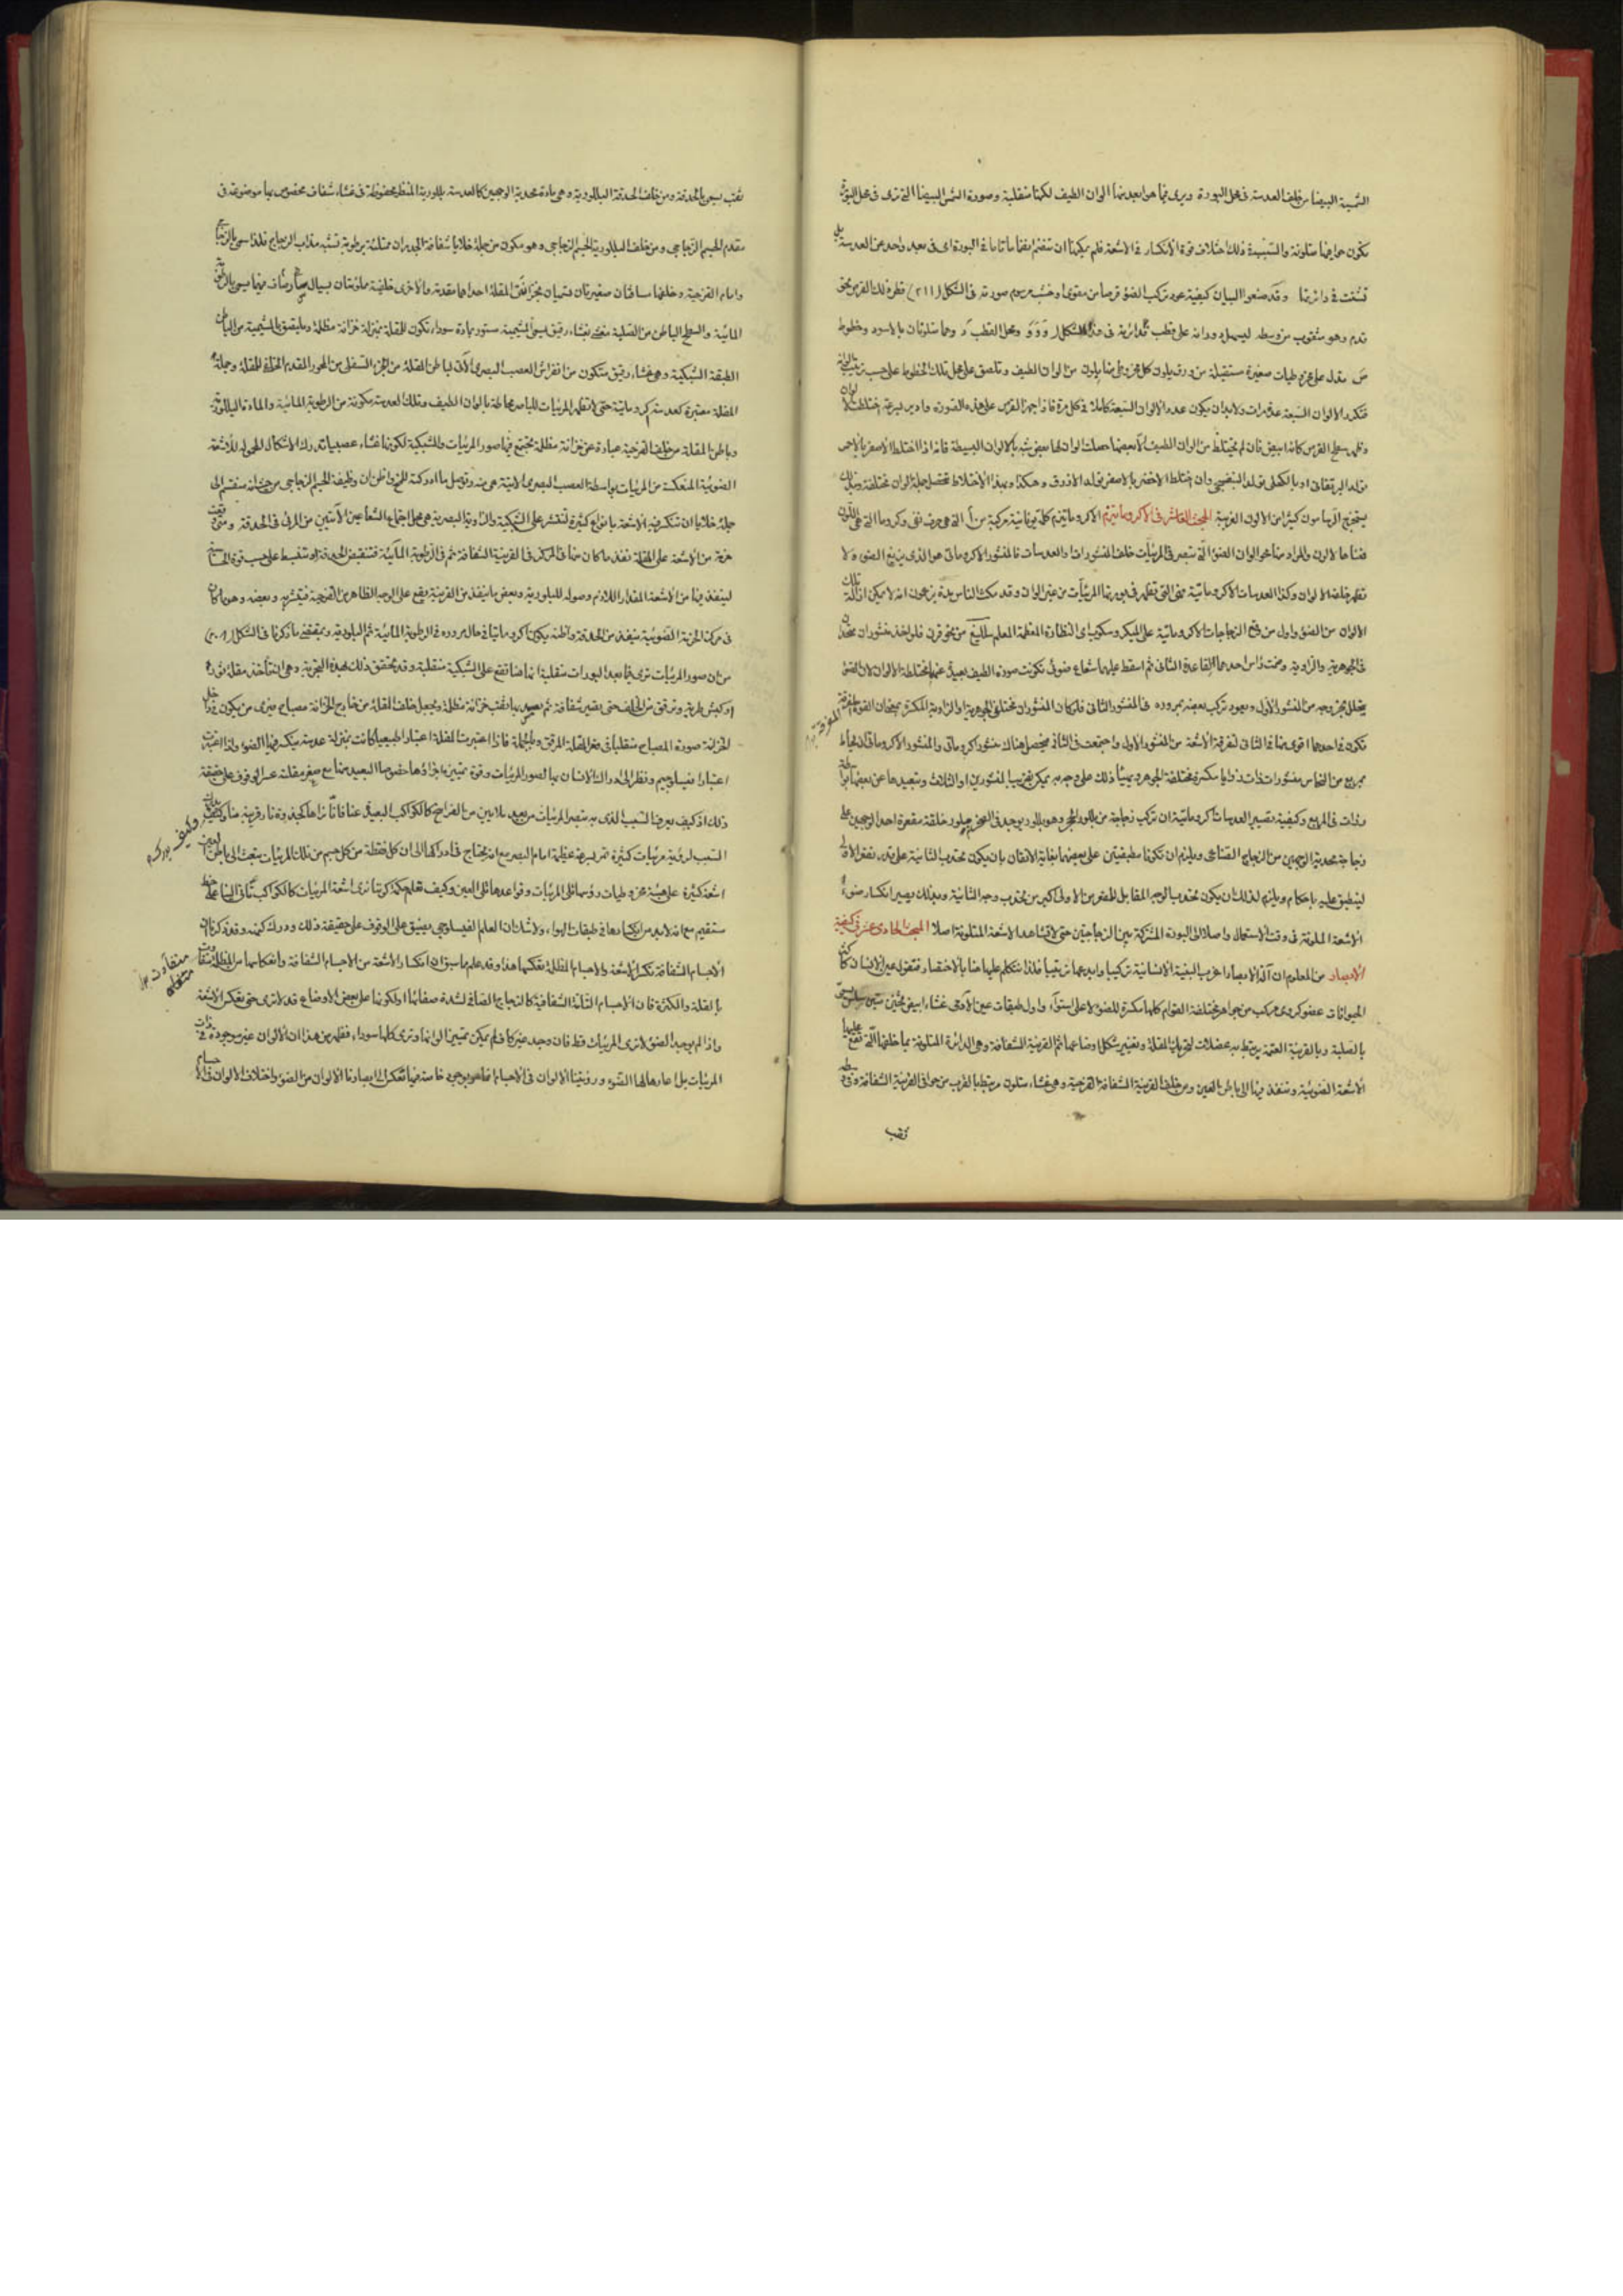 الشمسية البيضا من خلف العدسة في محل البورة ويرى فيما هو ابعد منها الوان الطيف لكنها منقلبة وصورة الشمس البيضا التي ترى في محل البورة
تكون حوافيها متلونة والسبب في ذلك اختلاف قوة الانكسار في الاشعة فلم يمكنها ان تنضم انضماما تاما في البورة اي في بعد واحد عن العدسة بل
تشتت في دائرتها وقد صنعوا لبيان كيفية عود تركب الضوء قرصا من مقوى او خشب مرسوم صورته في الشكل (٢١١) قطر ذلك القرص نحو
قدم وهو مثقوب من وسطه ليسهل دورانه على قطب
مخروطيات صغيرة مستطيلة من ورق يكون كل مخروطي منها بلون من الوان الطيف وتلصق على محل تلك الخطوط على حسب ترتيب الوانه
فتكرر الالوان السبعة عدة مرات ولا بد ان يكون عدد الالوان السبعة كاملا في كل مرة فاذا جهز القرص على هذه الصورة وادير بسرعة اختلطت الالوان
وظهر سطح القرص كانه ابيض فان لم يختلط من الوان الطيف الا بعضها حصلت الوان لها بعض شبه بالالوان البسيطة فانه اذا اختلط الاصفر بالاحمر
تولد البرتقاني او بالكحلي تولد البنفسجي وان اختلط الاخضر بالاصفر تولد الازرق وهكذا وبهذا الاختلاط تحصل جملة الوان مختلفة وبذلك
يستخرج الرسامون كثيرا من الالوان الغريبة المبحث العاشر في الاكروماتيزم الاكروماتيزم كلمة يونانية مركبة من أ التي هي حرف نفي وكروما التي هي اللون
فمعناها لا لون والمراد منها خلو الوان الضوء التي تبصر في المرئيات خلف المنشورات والعدسات فالمنشور الاكروماتي هو الذي يزيغ الضوء ولا
تظهر خلفه الالوان وكذا العدسات الاكروماتية هي التي تظهر في بورتها المرئيات من غير الوان وقد مكث الناس مدة يزعمون انه لا يمكن ازالة تلك
الالوان من الضوء واول من وضع الزجاجات الاكروماتية على الميكروسكوب اي النظارة المعظمة المعلم سلليغ من نحو قرن فلو اخذ منشوران متحدان
في الجوهرية والزاوية وضعت راس احدهما لقاعدة الثاني ثم اسقط عليهما شعاع ضوئي تكونت صورة الطيف بعيدة عنهما مختلطة الالوان لان الضوء
ينحل بخروجه من المنشور الاول ويعود تركب بعضه بمروره في المنشور الثاني فلو كان المنشوران مختلفي الجوهرية او الزاوية المكسرة بحيث ان القوة المفرقة
تكون في احدهما اقوى منها في الثاني لتفرقت الاشعة من المنشور الاول واجتمعت في الثاني فيحصل هناك منشور اكروماتي والمنشور الاكروماتي
بمربع من النحاس منشورات ذات زوايا مكسرة مختلفة الجوهر ويهيأ ذلك على وجه به يمكن تقريب المنشورين او الثلاث وتبعيدها عن بعضها
وذات في المربع وكيفية تصيير العدسات اكروماتية ان تركب زجاجة من بللور الحجر وهو بللور يوجد في الصخر
زجاجة محدبة الوجهين من الزجاج الصناعي ويلزم ان تكونا مطبقتين على بعضهما بغاية الاتقان بان يكون محدب الثانية على قدر مقعر الاولى
لينطبق عليه باحكام ويلزم لذلك ان يكون محدب الوجه المقابل للمقعر من الاولى اكبر من محدب وجه الثانية وبذلك يصير انكسار ضوء
الاشعة الملونة في وقت الاستعمال واصلا الى البورة المشتركة بين الزجاجتين حتى لا تشاهد الاشعة المتلونة اصلا المبحث الحادي عشر في كيفية
الابصار من المعلوم ان آلة الابصار اغرب البنية الانسانية تركيبا وابدعها ترتيبا فلذا نتكلم عليها هنا بالاختصار فنقول عين الانسان كاكثر
الحيوانات عضو كروي مركب من جواهر مختلفة القوام كلها مكسرة للضوء لا على استواء واول طبقات عين الآدمي غشاء ابيض ثخين متين سلس يسمى
بالصلبة وبالقرنية العتمة يرتبط به عضلات لتحريك المقلة وتغيير شكل اوضاعها ثم القرنية الشفافة وهي الدائرة المتلونة بما خلفها التي تقع عليها
الاشعة الضوئية وتنفذ منها الى باطن العين ومن خلف القرنية الشفافة القزحية وهي غشاء متلون مرتبط بالقرب من حوافي القرنية الشفافة وفي وسطه
ثقب
ثقب يسمى بالحدقة ومن خلف الحدقة البللورية وهي مادة محدبة الوجهين كالعدسة بللورية المنظر محفوظة في غشاء شفاف مخصوص بها موضوعة في
مقدم الجسم الزجاجي ومن خلف البللورية الجسم الزجاجي وهو مكون من جملة خلايا شفافة الجدران ممتلئة برطوبة تشبه مذاب الزجاج فلذا سمي بالزجاجي
وامام القزحية وخلفها مسافتان صغيرتان تسميان بخزانتي المقلة احداهما مقدمة والاخرى خلفية مملوئتان بسيال شفاف فيهما يسمى بالرطوبة
المائية والسطح الباطن من الصلبة مغشى بغشاء رقيق يسمى المشيمية مستور بمادة سوداء تكون للمقلة بمنزلة خزانة مظلمة ويلتصق بالمشيمية من الباطن
الطبقة الشبكية وهي غشاء رقيق متكون من انفراش العصب البصري الآتي لباطن المقلة من الجزء السفلي من المحور المقدم الخلفي للمقلة وجملة
المقلة معتبرة كعدسة اكروماتية حتى لا تظهر المرئيات للباصر محاطة بالوان الطيف وتلك العدسة مكونة من الرطوبة المائية والمادة البللورية
وباطن المقلة من خلف القزحية عبارة عن خزانة مظلمة تجتمع فيها صور المرئيات والشبكية لكونها غشاء عصبيا تدرك الاشكال المحمولة للاشعة
الضوئية المنعكسة من المرئيات بواسطة العصب البصري الآتية هي منه وتوصل ما ادركته للمخ واظن ان وظيفة الجسم الزجاجي من حيث انه منقسم الى
جملة خلايا ان تنكسر فيه الاشعة بانواع كثيرة لتنتشر على الشبكية والزاوية البصرية هي محل اجتماع الشعاعين الآتيين من المرئي في الحدقة ومتى وقعت
حزمة من الاشعة على المقلة نفذ ما كان منها في المركز في القرنية الشفافة ثم في الرطوبة المائية فتنقبض الحدقة او تنبسط على حسب قوة
لينفذ منها من الاشعة المقدار اللازم وصوله للبلورية وبعض ما ينفذ من القرنية يقع على الوجه الظاهر من القزحية فينتشر به وبعضه وهو ما كان
في مركز الحزمة الضوئية ينفذ من الحدقة واظنه يكون اكروماتيا في حال مروره في الرطوبة المائية ثم البلورية وبمقتضى ما ذكرنا في الشكل
من ان صور المرئيات ترى فيما بعد البورات منقلبة انها ايضا تقع على الشبكية منقلبة وقد تحقق ذلك بهذه التجربة وهي ان تأخذ مقلة ثور
او كبش طرية وترقق من الخلف حتى تصير شفافة ثم يسد بها ثقب خزانة مظلمة ويجعل خلف المقلة من خارج الخزانة مصباح فيرى من يكون داخل
الخزانة صورة المصباح منقلبا في قعر المقلة المرقق وبالجملة فاذا اعتبرت المقلة اعتبارا طبيعيا كانت بمنزلة عدسة ينكسر فيها الضوء واذا اعتبرت
اعتبارا فيسلوجيم ونظر الى ادراك الانسان بها لصور المرئيات وقوة تمييزه اجزاءها خصوصا البعيد منها مع صغر مقلته عسر الوقوف على حقيقة
ذلك اذ كيف يعرف السبب الذي به تبصر المرئيات من بعيد بملايين من الفراسخ كالكواكب البعيدة عنا فاننا نراها كجذوة نار قريبة منا
السبب لرؤية مرئيات كثيرة تمر بسرعة عظيمة امام البصر مع انه يحتاج في ادراكها الى ان كل نقطة من كل جسم من تلك المرئيات يبعث الى باطن العين
اشعة كثيرة على هيئة مخروطيات رؤسها على المرئيات وقواعدها على العين وكيف نعلم هكذا كوننا نرى اشعة المرئيات كالكواكب تأتي الينا على خط
مستقيم مع انه لابد من انكسارها في طبقات الهواء ولا شك ان العلم الفيسلوجي يضيق على الوقوف على حقيقة ذلك ودرك كنهه وقد ذكرنا ان
الاجسام الشفافة تكسر الاشعة والاجسام المظلمة تعكسها هذا وقد علم مما سبق ان انكسار الاشعة من الاجسام الشفافة وانعكاسها من المظلمة متفاوت
بالقلة والكثرة فان الاجسام التامة الشفافية كالزجاج الصافي لشدة صفائها او لكونها على بعض الاوضاع قد لا ترى حتى تعكس الاشعة
واذا لم يوجد الضوء لا ترى المرئيات قط فان وجد غير كاف لم يمكن تمييز الوانها وترى كلها سوداء فظهر من هذا ان الالوان غير موجودة في ذات
المرئيات بل اعارها لها الضوء ورؤيتنا الالوان في الاجسام انما هو بوجود خاصة فيها تعكس لابصارنا الالوان من الضوء واختلاف الالوان في الاجسام